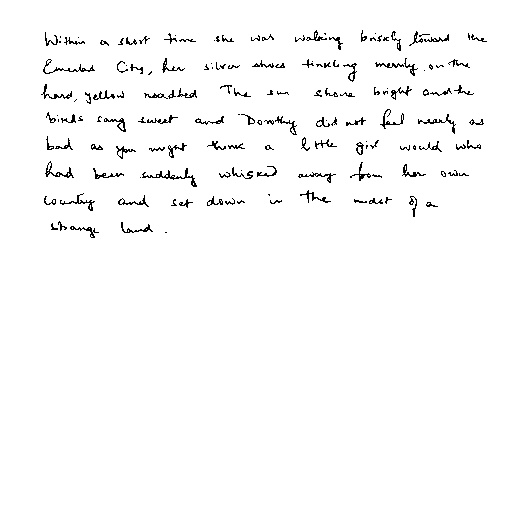 Within a short time she was walking briskly toward the
Emerald City, her silver shoes tinkling merrily on the
hard, yellow roadbed The sun shone bright and the
birds sang sweet and Dorothy did not feel nearly as
bad as you might think a little girl would who
had been suddenly whisked away from her own
country and set down in the midst of a
strange land.